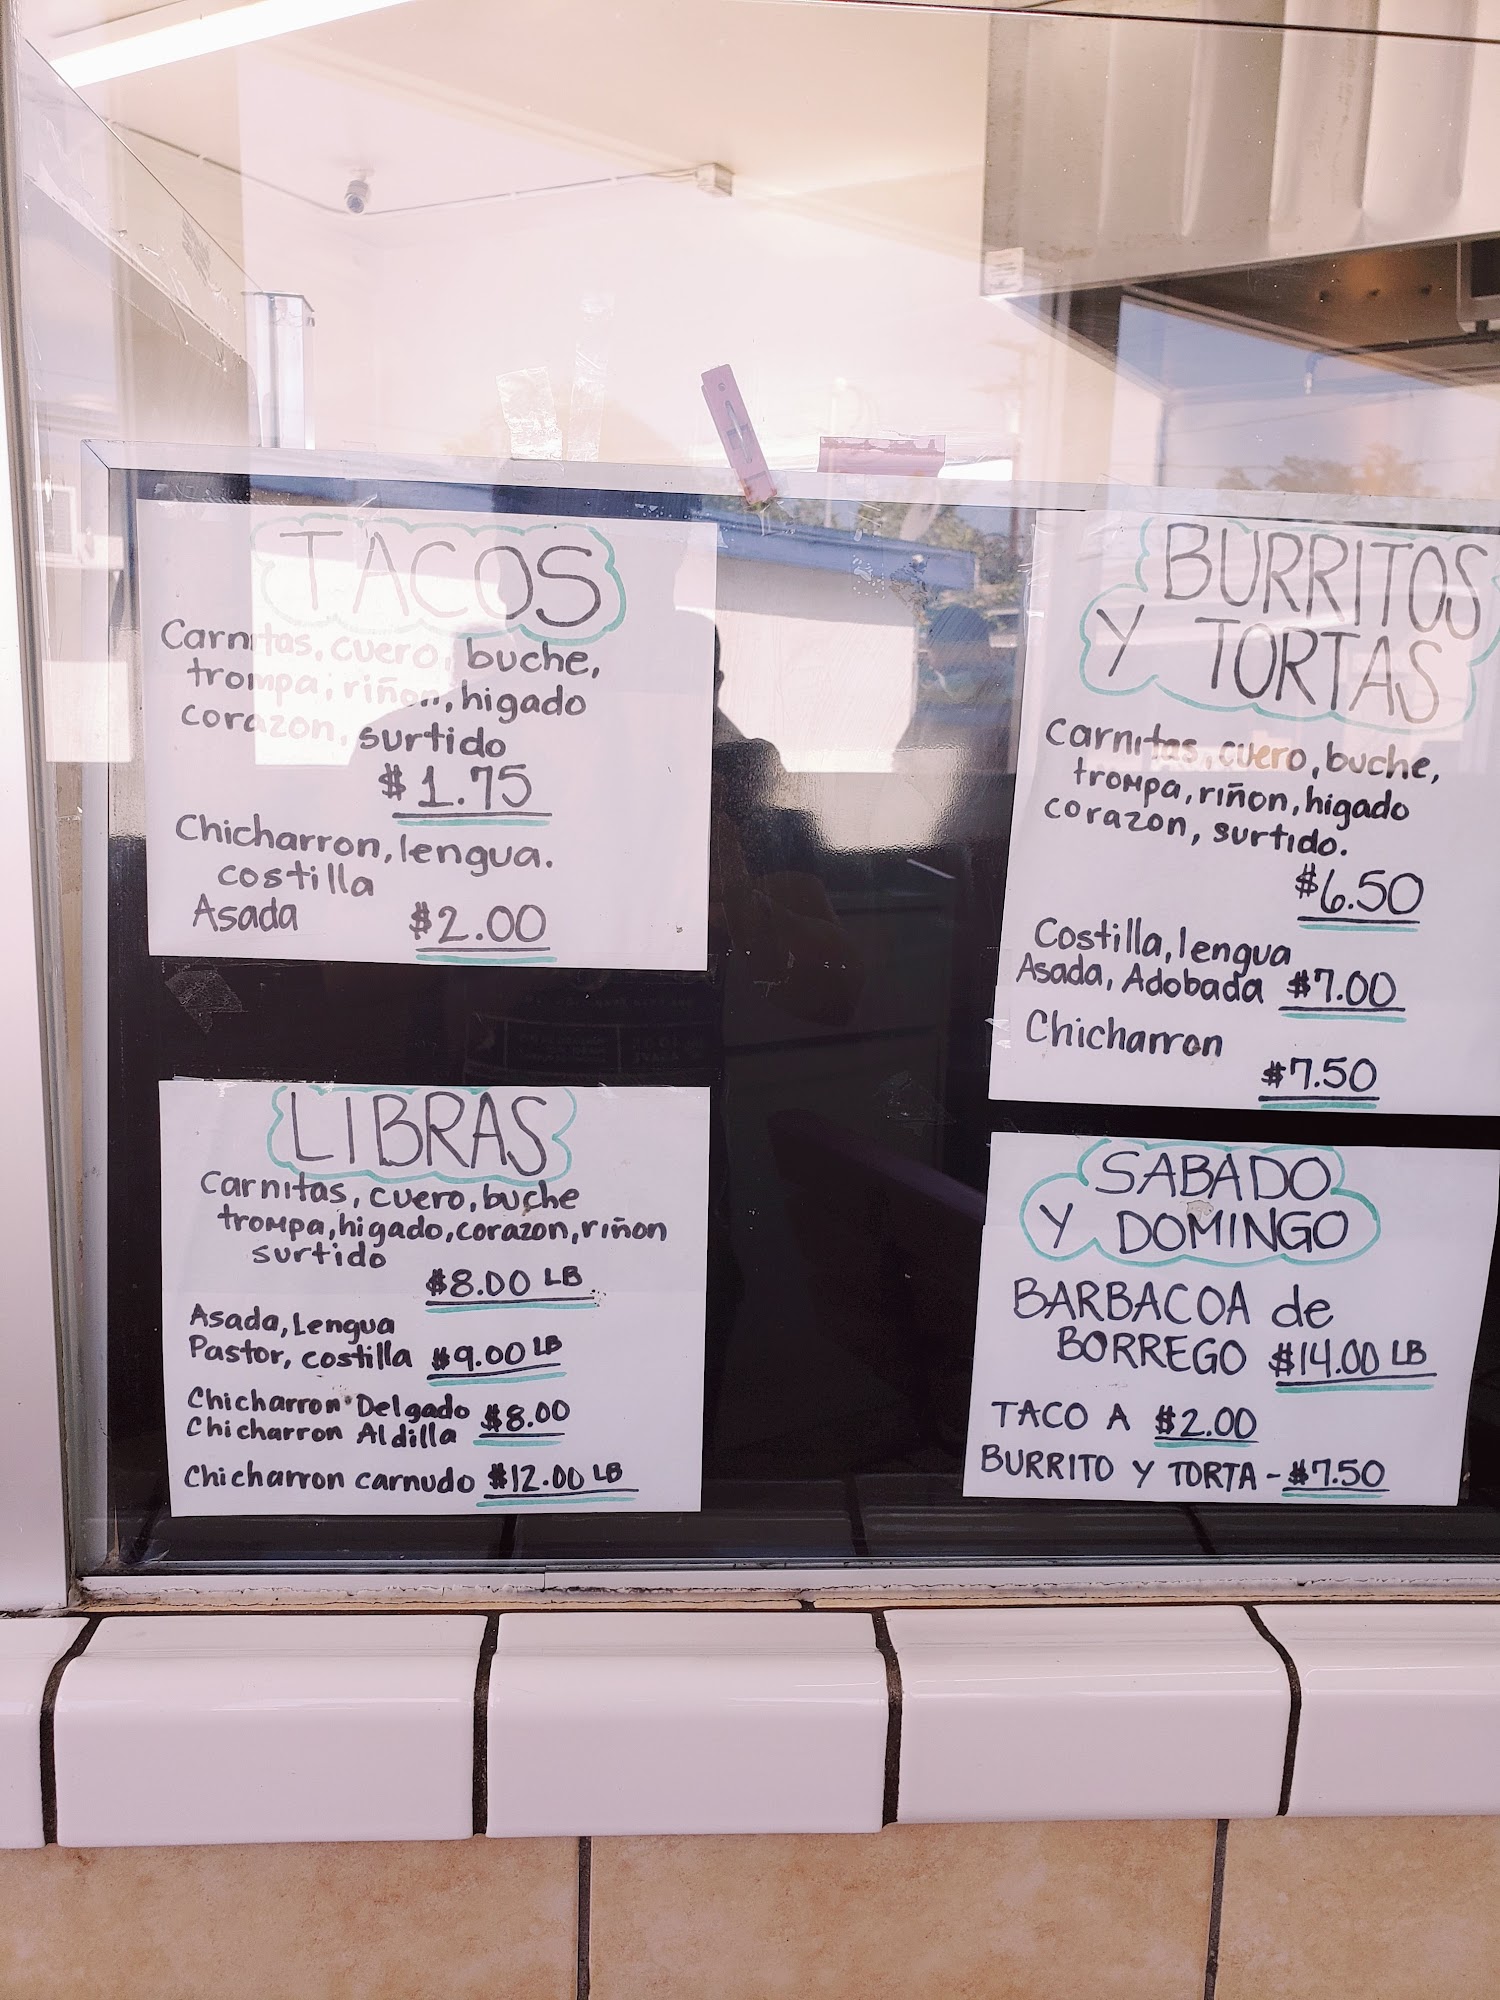 TACOS
Carnitas, cuero, buche,
trompa, riñon, higado
corazon, surtido
$1.75
Chicharron, lengua.
costilla
Asada $2.00
LIBRAS
Carnitas, cuero, buche
trompa, higado, corazon, riñon
surtido
$8.00 LB
Asada, Lengua
Pastor, costilla $9.00 LB
Chicharron Delgado $8.00
Chicharron Aldilla
Chicharron carnudo $12.00 LB
BURRITOS
Y TORTAS
Carnitas, cuero, buche,
trompa, riñon, higado
corazon, surtido.
$6.50
Costilla, lengua
Asada, Adobada $7.00
Chicharron
$7.50
SABADO
Y DOMINGO
BARBACOA de
BORREGO $14.00 LB
TACO A $2.00
BURRITO Y TORTA - $7.50